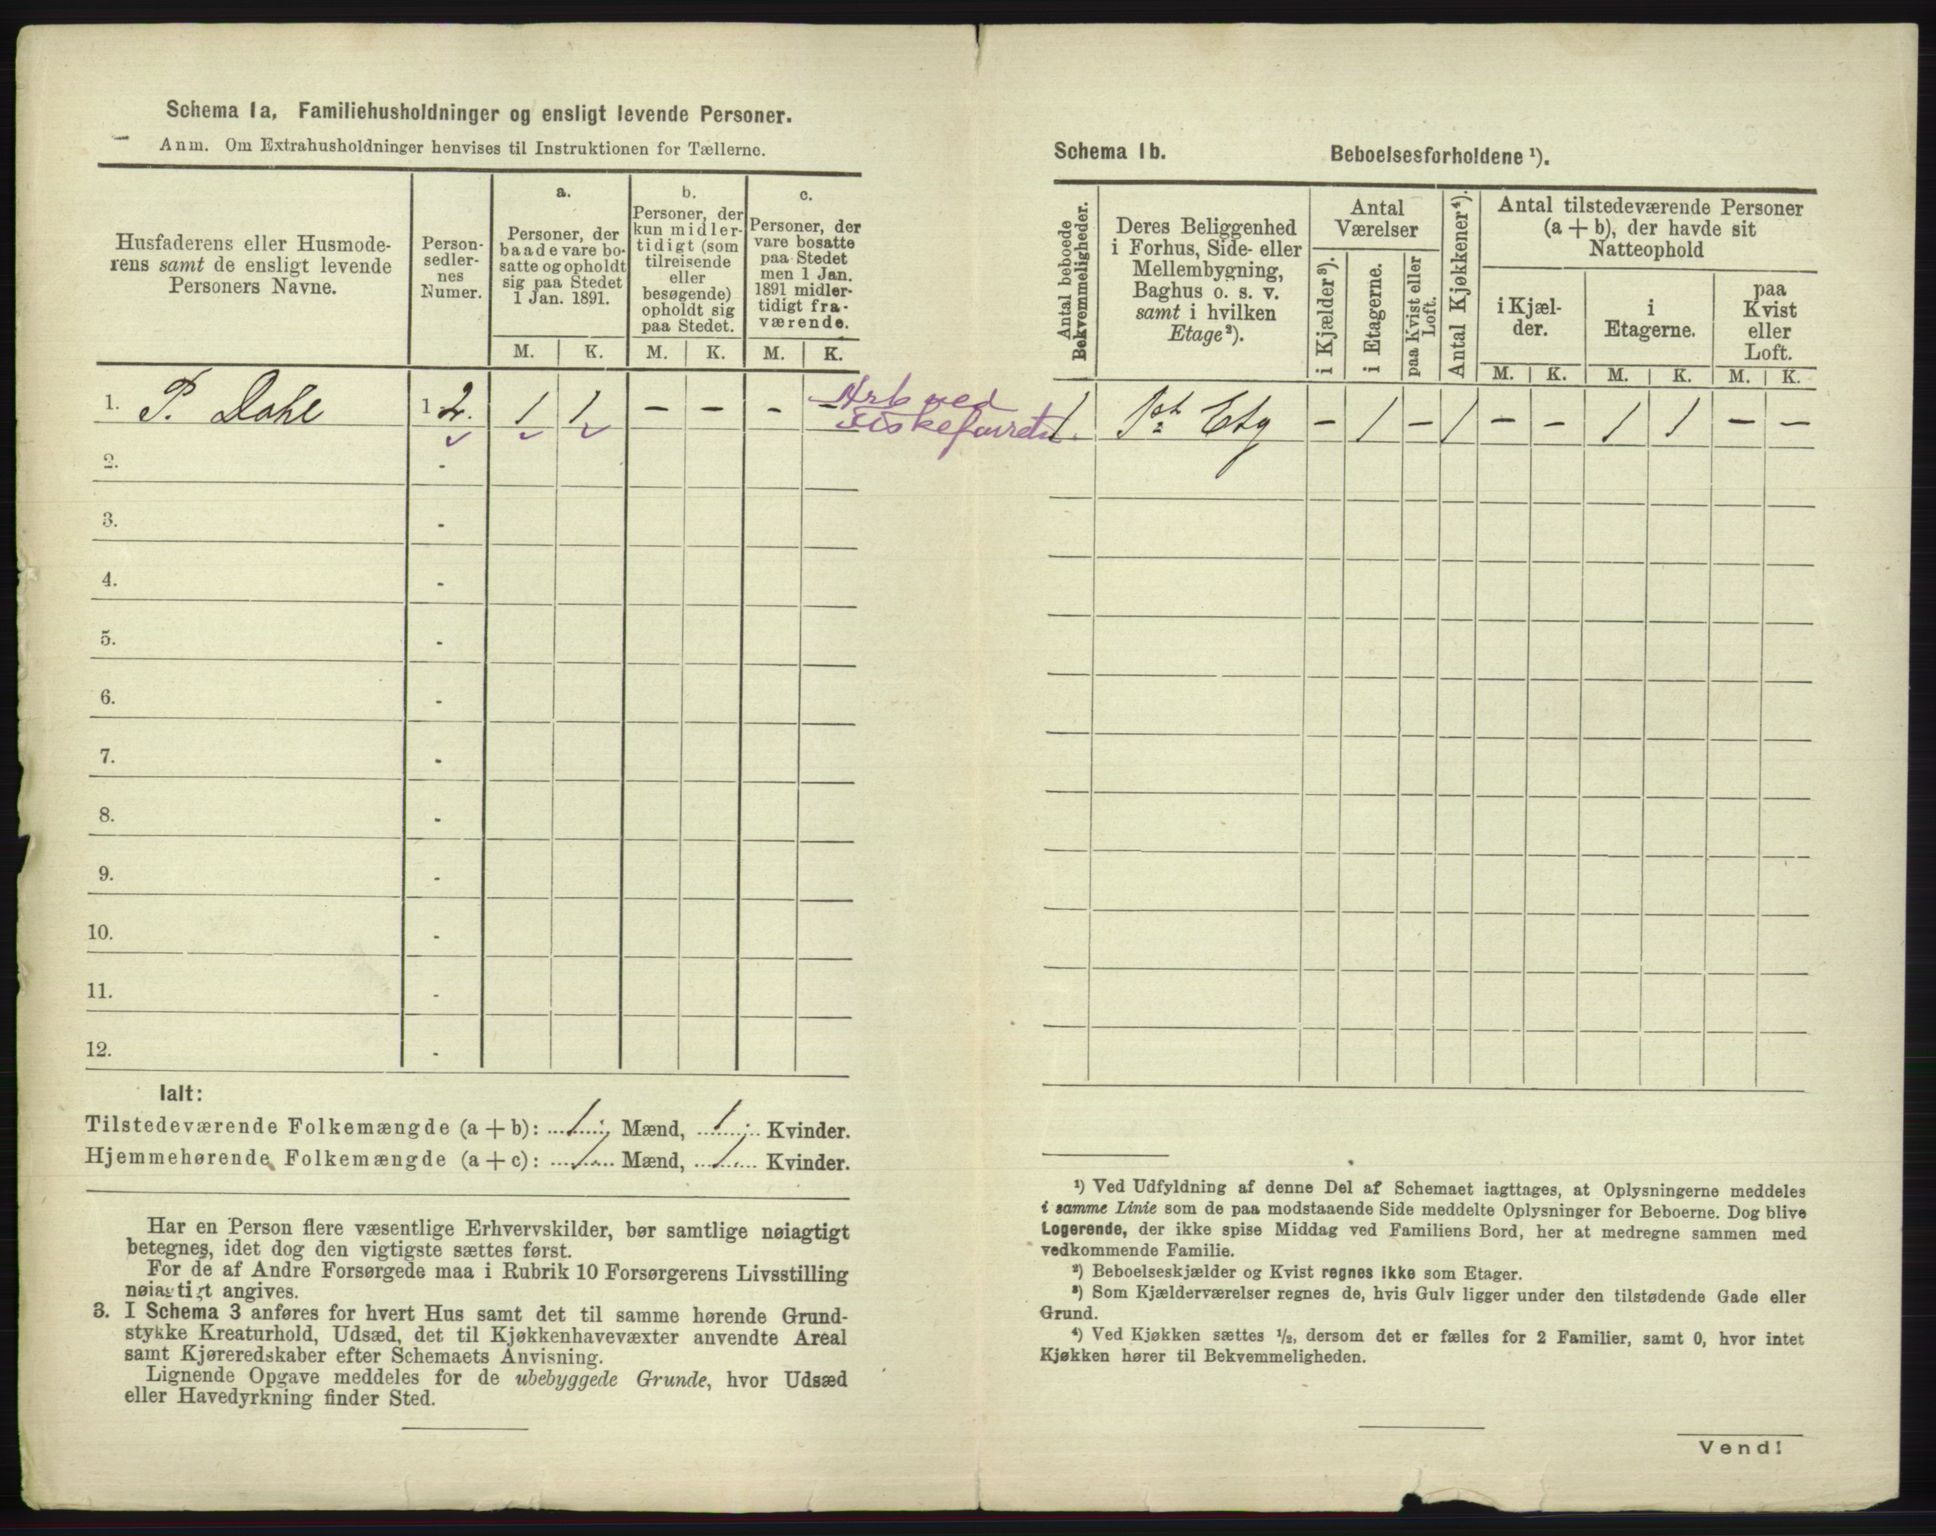 Schema 1a, Familiehusholdninger og ensligt levende Personer.
Anm. Om Extrahusholdninger henvises til Instruktionen for Tællerne.
Husfaderens eller Husmode-
rens samt de ensligt levende
Personers Navne.
Person-
sedler-
nes
Numer.
a.
Personer, der
baade vare bo-
satte og opholdt
sig paa Stedet
1 Jan. 1891.
b.
Personer, der
kun midler-
tidigt (som
tilreisende
eller
besøgende)
opholdt sig
paa Stedet.
c.
Personer, der
vare bosatte
paa Stedet
men 1 Jan.
1891 midler-
tidigt fra-
værende.
M. K. M. K. M. K.
1. P. Dahl 1 2. 1 1 - - - -
Arb ved
2. -
3. -
4. -
5. -
6. -
7. -
8. -
9. -
10. -
11. -
12. -
Ialt:
Tilstedeværende Folkemængde (a + b): 1 Mænd, 1 Kvinder.
Hjemmehørende Folkemængde (a + c): 1 Mænd, 1 Kvinder.
Har en Person flere væsentlige Erhvervskilder, bør samtlige nøiagtigt
betegnes, idet dog den vigtigste sættes først.
For de af Andre Forsørgede maa i Rubrik 10 Forsørgerens Livsstilling
nøiagtigt angives.
3. I Schema 3 anføres for hvert Hus samt det til samme hørende Grund-
stykke Kreaturhold, Udsæd, det til Kjøkkenhavevæxter anvendte Areal
samt Kjøreredskaber efter Schemaets Anvisning.
Lignende Opgave meddeles for de ubebyggede Grunde, hvor Udsæd
eller Havedyrkning finder Sted.
Schema 1b. Beboelsesforholdene ¹).
Antal beboede
Bekvemmeligheder.
Deres Beliggenhed
i Forhus, Side- eller
Mellembygning,
Baghus o. s. v.
samt i hvilken
Etage²).
Antal
Værelser
i Kjælder³).
i Etagerne.
paa Kvist eller
Loft.
Antal Kjøkkener⁴).
Antal tilstedeværende Personer
(a + b), der havde sit
Natteophold
i Kjæl-
der.
i
Etagerne.
paa
Kvist
eller
Loft.
M. K. M. K. M. K.
1. 1st Etg - 1 - 1 - - 1 1 - -
¹) Ved Udfyldning af denne Del af Schemaet iagttages, at Oplysningerne meddeles
i samme Linie som de paa modstaaende Side meddelte Oplysninger for Beboerne. Dog blive
Logerende, der ikke spise Middag ved Familiens Bord, her at medregne sammen med
vedkommende Familie.
²) Beboelseskjælder og Kvist regnes ikke som Etager.
³) Som Kjælderværelser regnes de, hvis Gulv ligger under den tilstødende Gade eller
Grund.
⁴) Ved Kjøkken sættes ½, dersom det er fælles for 2 Familier, samt 0, hvor intet
Kjøkken hører til Bekvemmeligheden.
Vend!